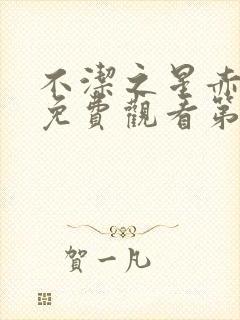 不潔之星赤
免費觀看第
賀一凡